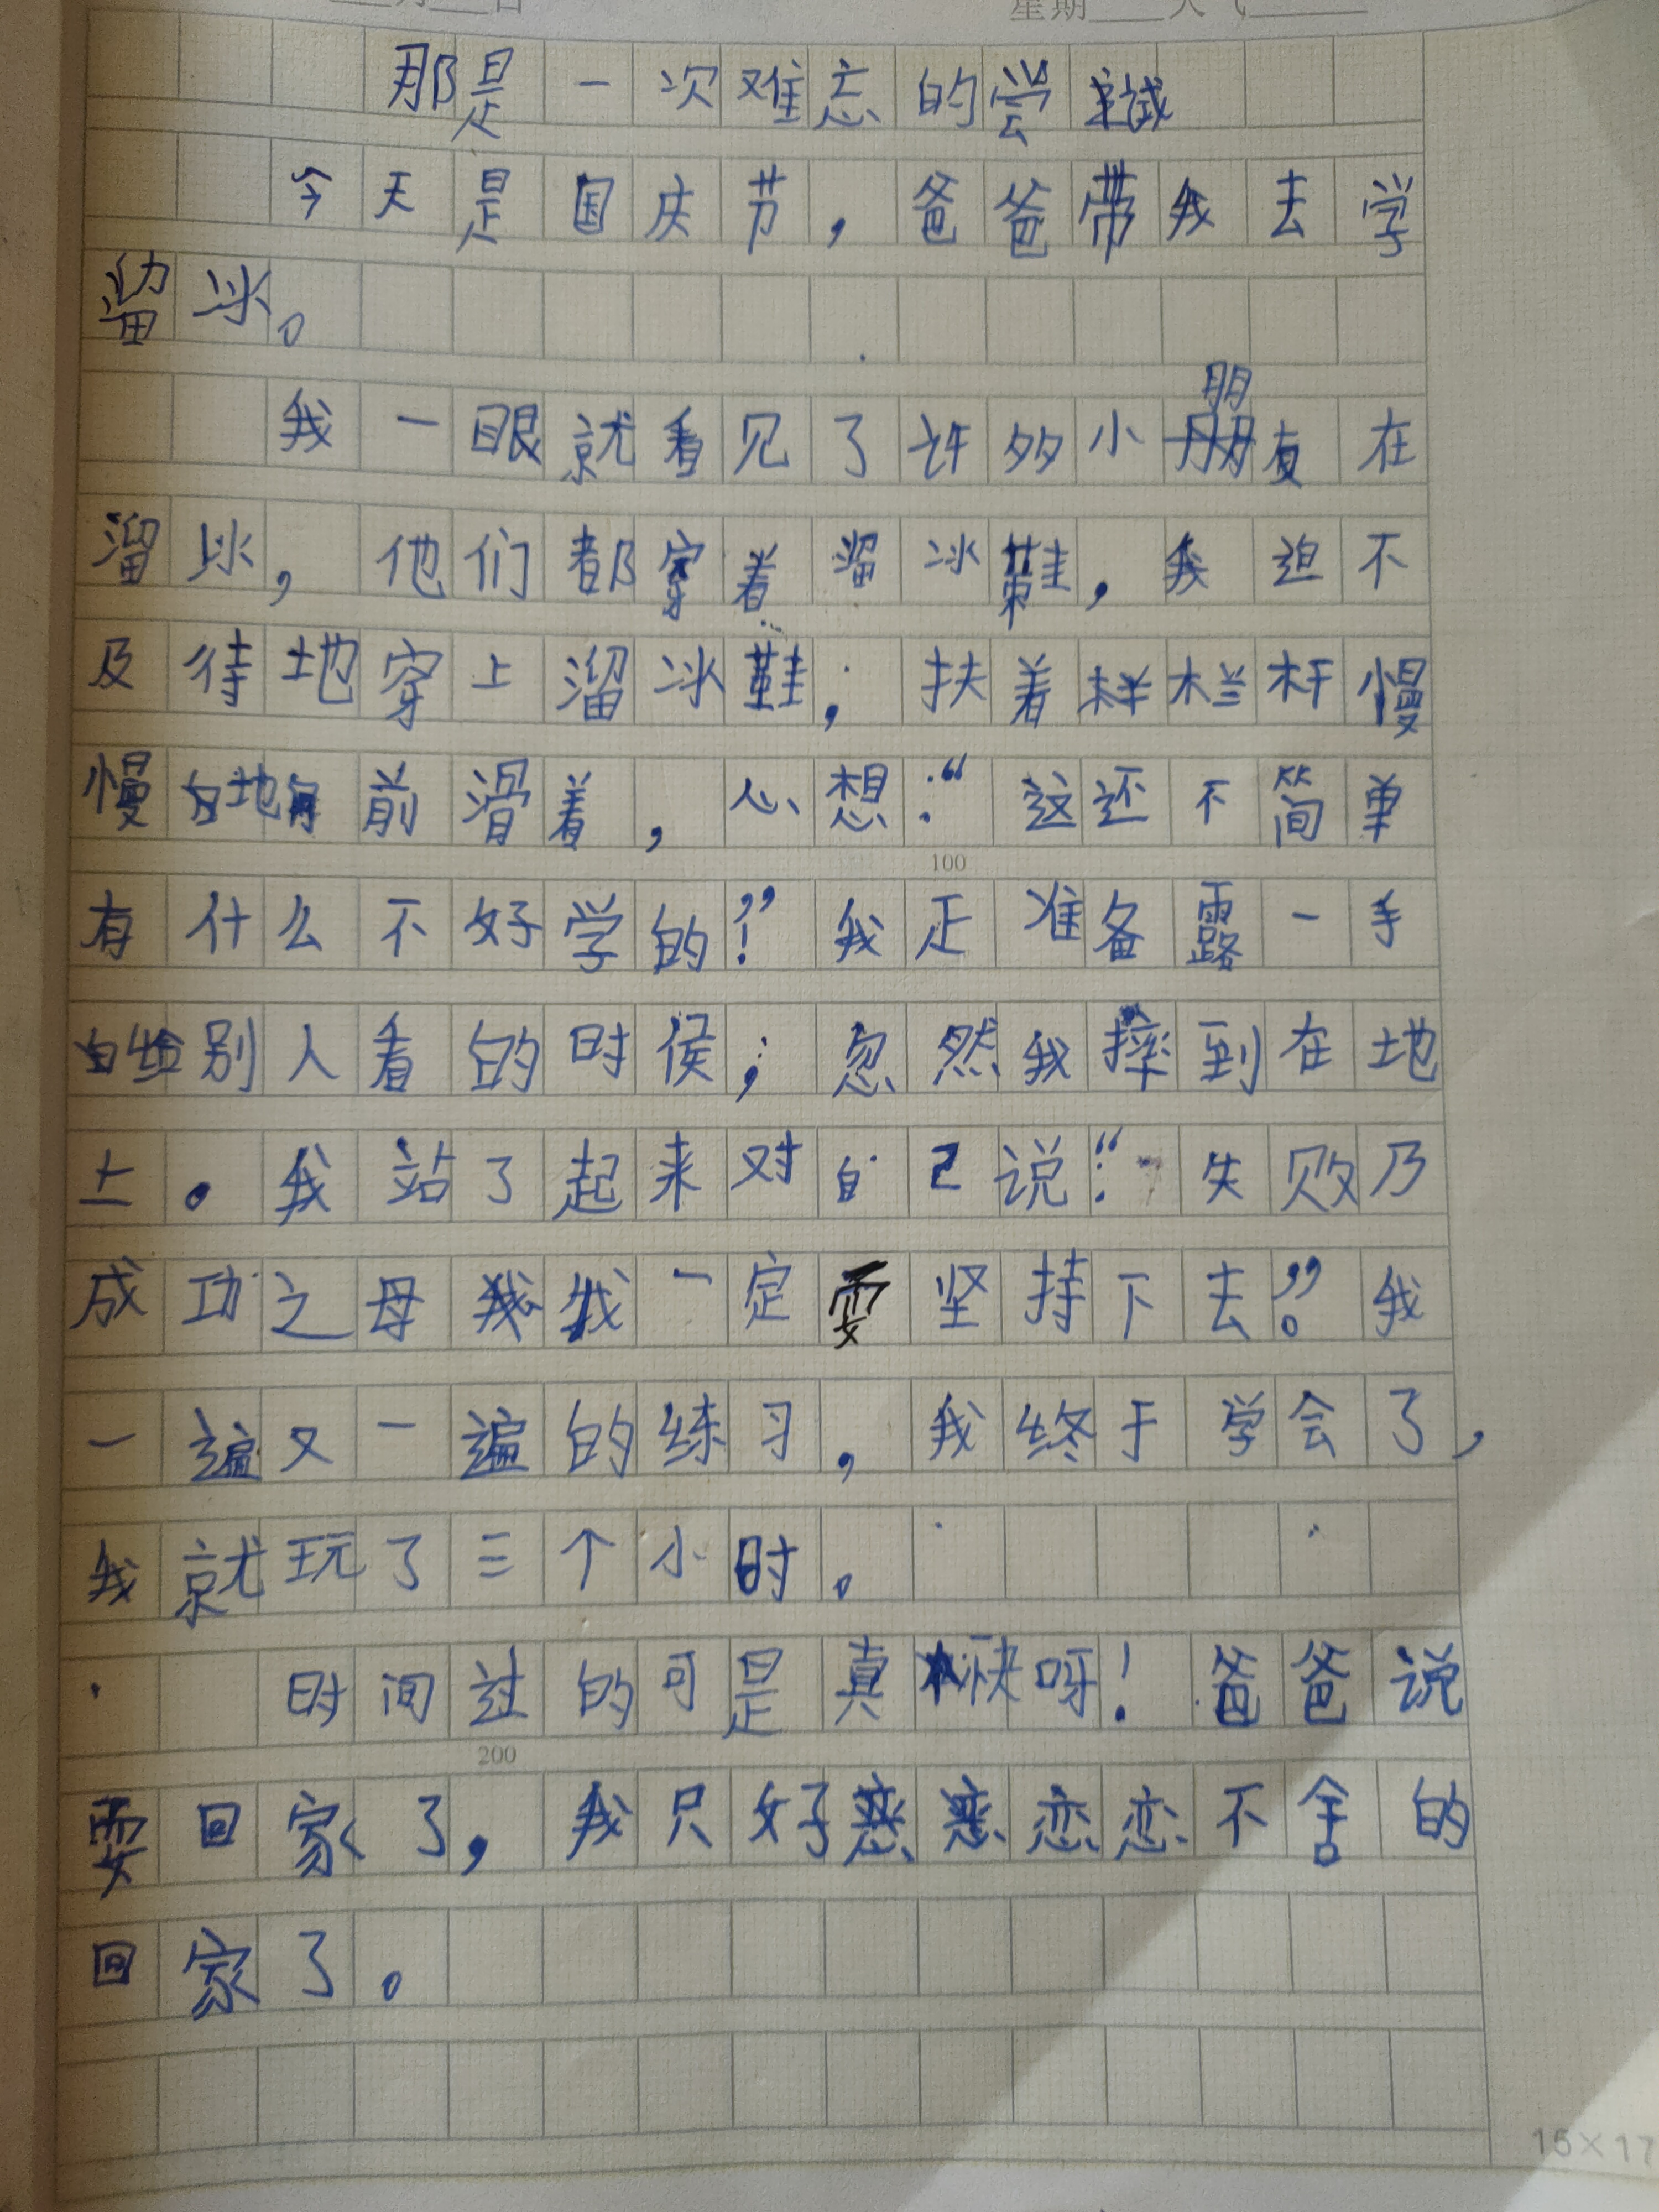 星期____天气______
那是一次难忘的尝试
今天是国庆节，爸爸带我去学
溜冰。
我一眼就看见了许多小朋友在
溜冰，他们都穿着溜冰鞋，我迫不
及待地穿上溜冰鞋，扶着栏杆慢
慢地向前滑着，心想：“这还不简单
100
有什么不好学的！”我正准备露一手
给别人看的时侯，忽然我摔到在地
上。我站了起来对自己说：“失败乃
成功之母我一定要坚持下去。”我
一遍又一遍的练习，我终于学会了，
我就玩了三个小时。
时间过的可是真快呀！爸爸说
200
要回家了，我只好恋恋不舍的
回家了。
15×17